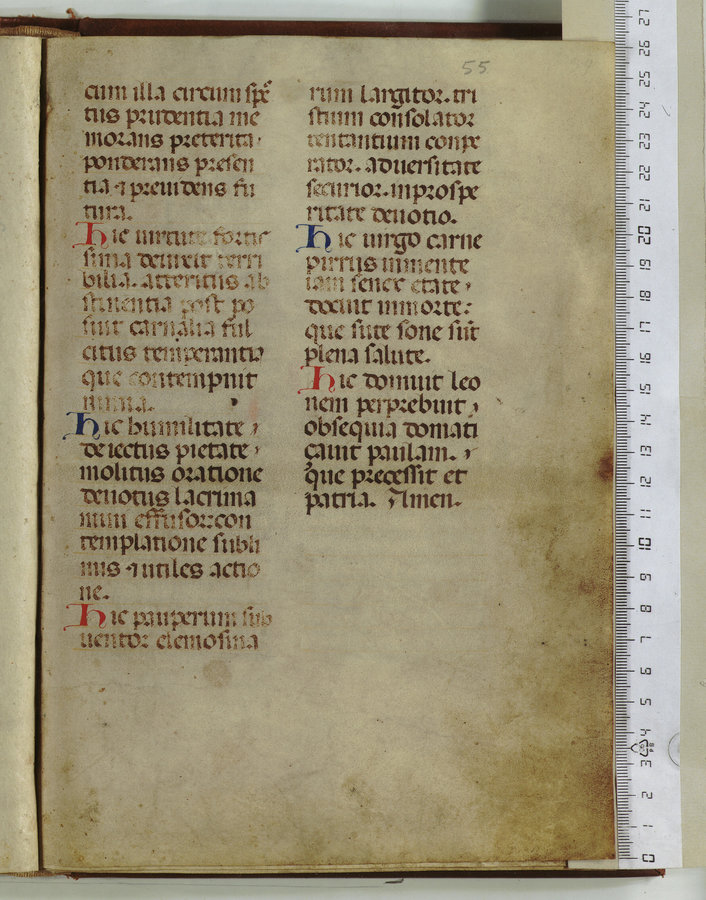 55
cum illa circum spc̄
tus prudentia me
morans preterita.
ponderans presen
tia ⁊ preuidens fu
tura.
Hic uirtute fortis
sima deuicit terri
bilia. attentus ab
stinentia post po
suit carnalia ful
citus temperantia
que contempnit
Hic humilitate,
deiectus pietate,
molitus oratione
deuotus lacrima
rum effusor: con
templatione subli
mis ⁊ utiles actio
ne.
Hic pauperum sub
uentor elemosina
rum largitor. tri
stium consolator
temtantium conpe
rator. aduersitate
securior. in prospe
ritate deuotio.
Hic uirgo carne
purus in mente
iam senex etate,
docuit in morte:
que sute sone sūt
plena salute.
Hic domuit leo
nem perprebuit,
obsequia domati
cauit paulam.
que precessit et
patria. Amen.
0 1 2 3 4 5 6 7 8 9 10 11 12 13 14 15 16 17 18 19 20 21 22 23 24 25 26 27